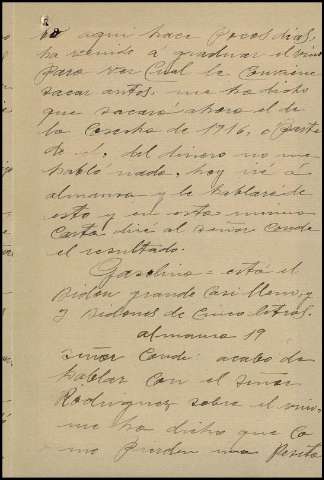 do aqui hace pocos dias,
ha venido á graduar el vino
para ver cual le conviene
sacar antes. me ha dicho
que sacará ahora el de
la cosecha de 1916, o parte
de él, del dinero no me
habló nada, hoy iré a
almansa y le hablaré de
esto y en esta misma
carta diré al señor Conde
el resultado.
Gasolina = está el
bidon grande casi lleno, y
7 bidones de cinco litros.
almansa 19
Señor Conde: acabo de
hablar con el señor
Rodriguez sobre el vino,
me ha dicho que co-
mo pierden una peseta